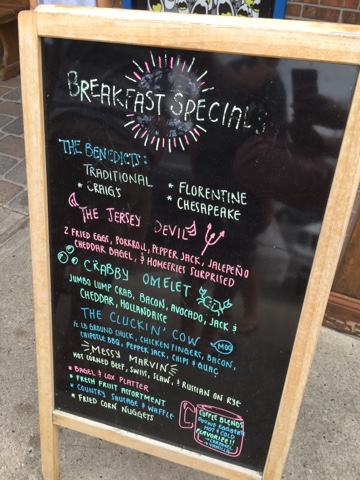 BREAKFAST SPECIALS
THE BENEDICTS:
TRADITIONAL
* CRAIG'S
* FLORENTINE
* CHESAPEAKE
THE JERSEY DEVIL
2 FRIED EGGS, PORKROLL, PEPPER JACK, JALEPEÑO
CHEDDAR BAGEL, & HOMEFRIES SURPRISED
CRABBY OMELET
JUMBO LUMP CRAB, BACON, AVOCADO, JACK &
CHEDDAR, HOLLANDAISE
THE CLUCKIN' COW
MOO
LB GROUND CHUCK, CHICKEN FINGERS, BACON,
CHIPOTLE BBQ, PEPPER JACK, CHIPS & GUAC
MESSY MARVIN
HOT CORNED BEEF, SWISS, SLAW, & RUSSIAN ON RYE
* BAGEL & LOX PLATTER
* FRESH FRUIT ASSORTMENT
* COUNTRY SAUSAGE & WAFFLE
* FRIED CORN NUGGETS
COFFEE BLENDS
HOT & COLD
FLAVORIZE!!